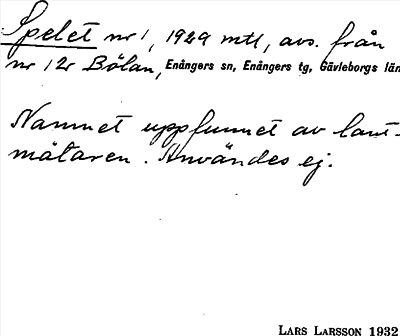 Spelet nr 1, 1929 mtl, avs. från
nr 12 Bölan, Enångers sn, Enångers tg, Gävleborgs län
Namnet uppfunnet av lant-
mätaren. Användes ej.
LARS LARSSON 1932